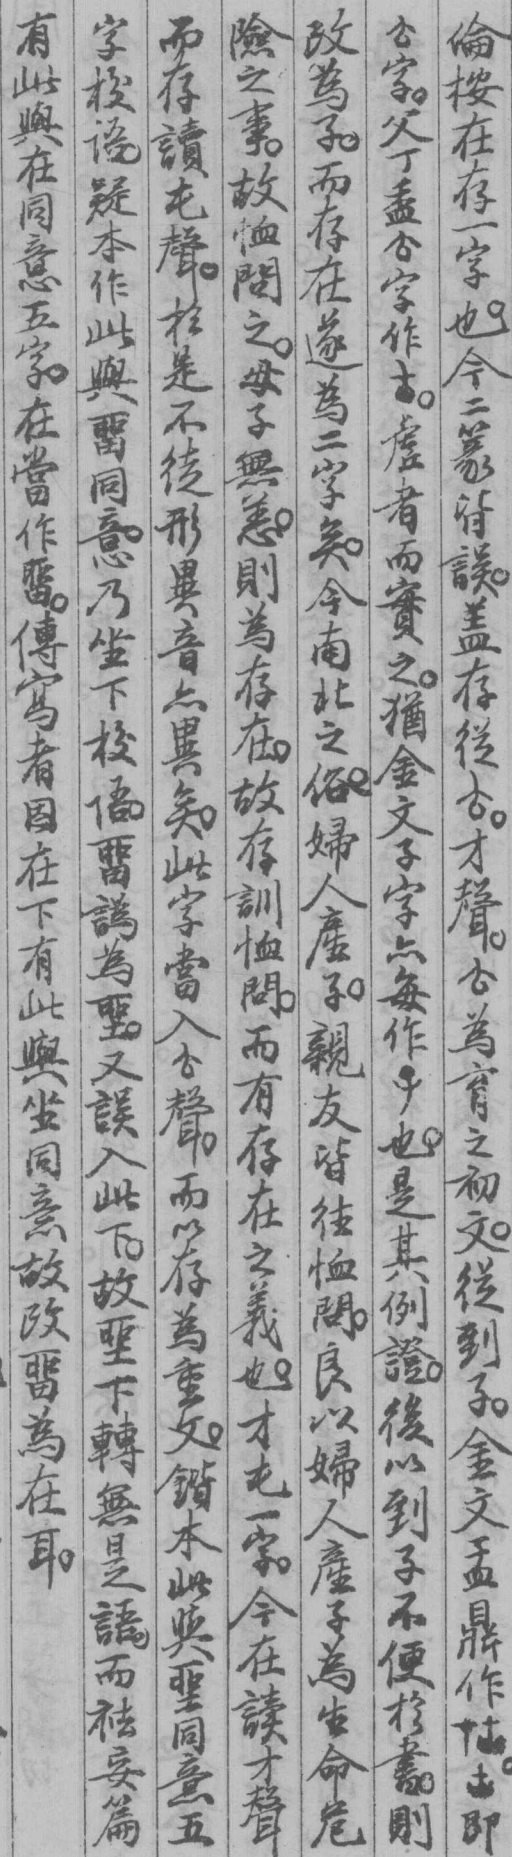 倫桉在存一字也。今二篆皆誤。蓋存從𠫓。才聲。𠫓為育之初文。從到子。金文盂鼎作𠀇。𠀇即
𠫓字。父丁盉𠫓字作𠀇。虛者而實之。猶金文子字亦每作也。是其例證。後以到子不便於書。則
改為子。而存在遂為二字矣。今南北之俗。婦人産子。親友皆往恤問。良以婦人産子為生命危
險之事。故恤問之。母子無恙。則為存在。故存訓恤問。而有存在之義也。才屯一字。今在讀才聲
而存讀屯聲。於是不徒形異音亦異矣。此字當入𠫓聲。而以存為重文。鍇本此與聖同意五
字校語。疑本作此與畱同意。乃坐下校語。畱譌為聖。又誤入此下。故聖下轉無是語。而袪妄篇
有此與在同意五字。在當作畱。傳寫者因在下有此與坐同意故改畱為在耳。